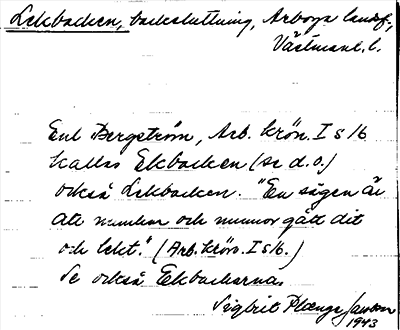 Lekbacken, backsluttning, Arboga landsf.,
Västmanl. l.
Enl Bergström, Arb. krön. I s 16
kallas Ekbacken (se d.o.)
också Lekbacken. "En sägen är
att munkar och nunnor gått dit
och lekt." (Arb. krön. I s 16.)
Se också Ekbackarna.
Sigbrit Plænge Janson
1943